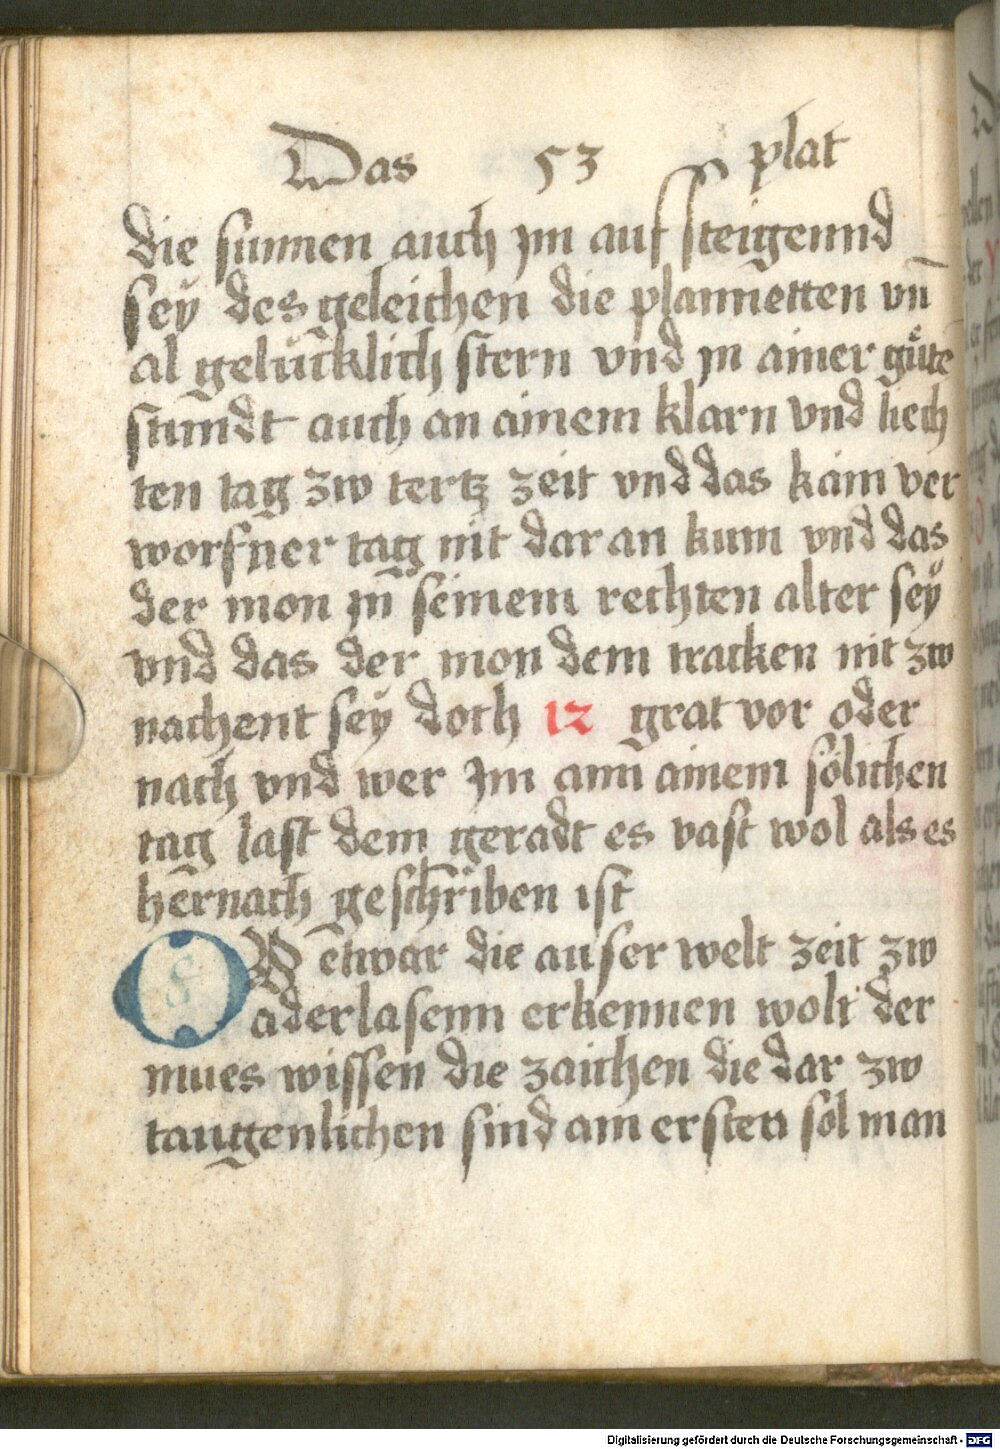 Das 53 plat
die sunnen auch ym auf steigennd
seÿ des geleichen die plannetten vn̄
al gelücklich stern vnd yn ainer gůte
stundt auch an ainem klarn vnd liech
ten tag zw tertz zeit vnd das kain ver
worfner tag nit dar an kum vnd das
der mon yn̄ seinem rechten alter seÿ
vnd das der mon dem tracken nit zw
nachent seÿ doch 12 grat vor oder
nach vnd wer Im ann ainem sölichen
tag last dem geradt es vast wol als es
hernach geschriben ist
O W etwar die auser welt zeit zw
aderlasenn erkennen wolt der
mues wissen die zaichen die dar zw
taugenlichen sind am ersten sol man
Digitalisierung gefördert durch die Deutsche Forschungsgemeinschaft - DFG